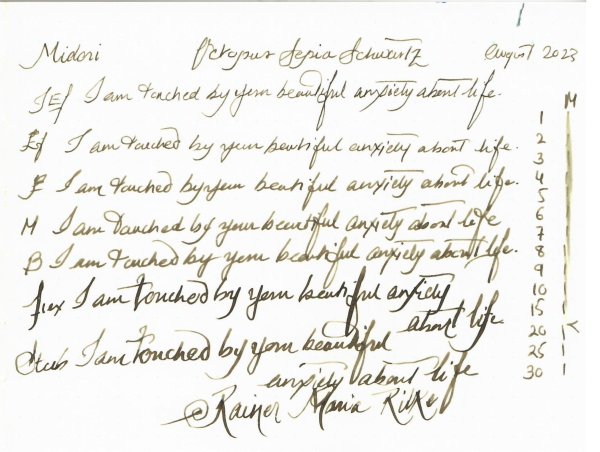 Midori Octopus Sepia Schwartz August 2023
JEf I am touched by your beautiful anxiety about life.
Ef I am touched by your beautiful anxiety about life.
F I am touched by your beautiful anxiety about life.
M I am touched by your beautiful anxiety about life
B I am touched by your beautiful anxiety about life.
flex I am touched by your beautiful anxiety
about life
Stub I am touched by your beautiful
anxiety about life
Rainer Maria Rilke
M
1
2
3
4
5
6
7
8
9
10
15
20
25
30